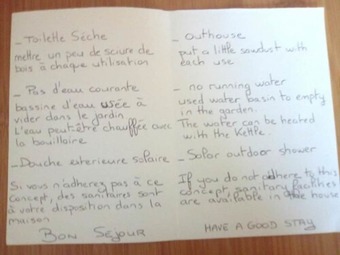 - Toilette Sèche
mettre un peu de sciure de
bois à chaque utilisation
- Pas d'eau courante
bassine d'eau usée à
vider dans le jardin
L'eau peut-être chauffée avec
la bouilloire
- Douche exterieure solaire
Si vous n'adherez pas à ce
concept, des sanitaires sont
à votre disposition dans la
maison
BON SEJOUR
- outhouse
put a little sawdust with
each use
- no running water
used water basin to empty
in the garden.
The water can be heated
with the Kettle.
- Solar outdoor shower
If you do not adhere to this
concept, sanitary facilities
are available in the house
HAVE A GOOD STAY